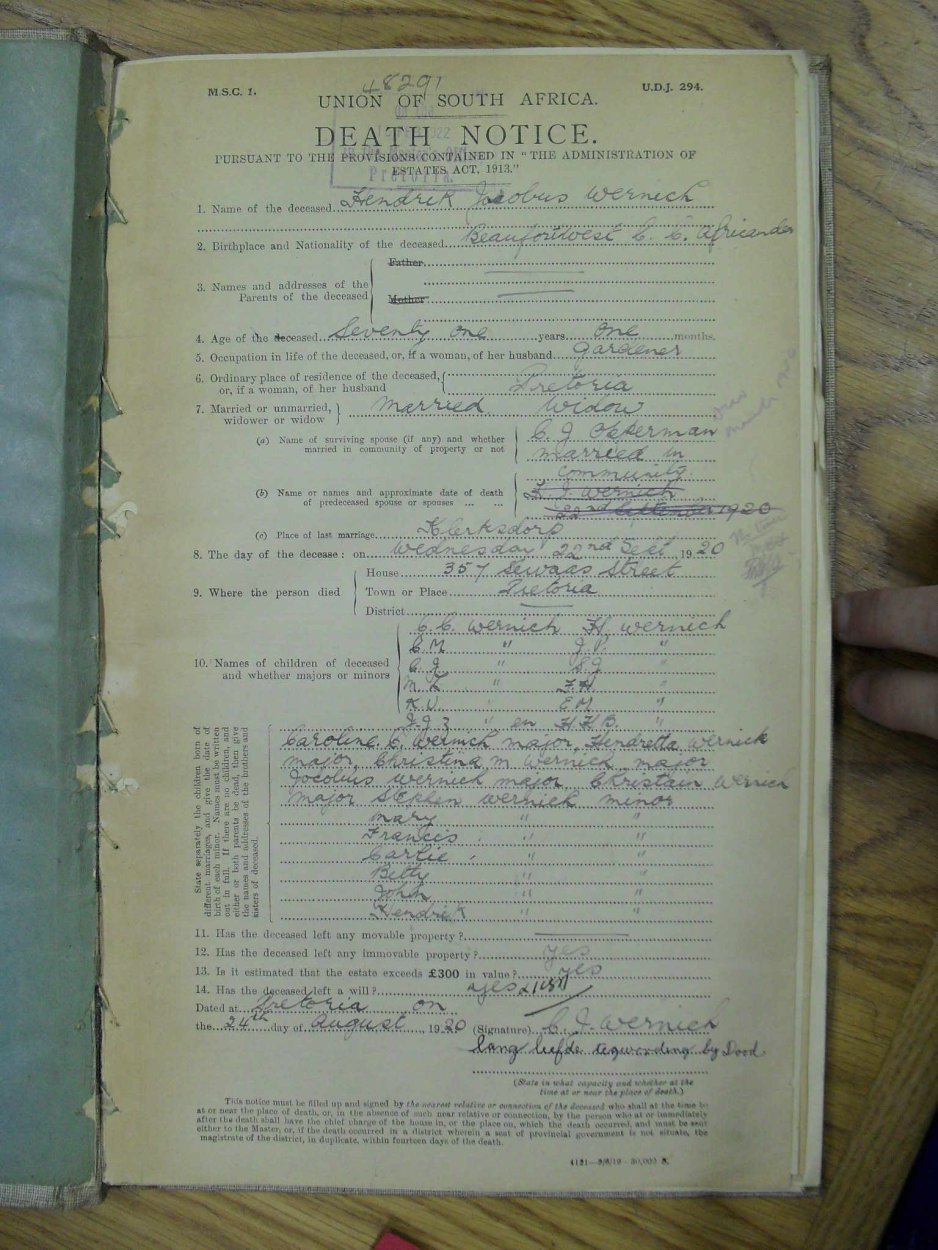 48291
M.S.C. 1.
U.D.J. 294.
UNION OF SOUTH AFRICA.
DEATH NOTICE.
PURSUANT TO THE PROVISIONS CONTAINED IN "THE ADMINISTRATION OF
ESTATES ACT, 1913."
Pretoria.
1. Name of the deceased Hendrik Jacobus Wernich
2. Birthplace and Nationality of the deceased Beaufortwest C. C. Africander
3. Names and addresses of the Parents of the deceased
Father
Mother
4. Age of the deceased Seventy one years one months.
5. Occupation in life of the deceased, or, if a woman, of her husband gardener
6. Ordinary place of residence of the deceased, or, if a woman, of her husband Pretoria
7. Married or unmarried, widower or widow married widow
(a) Name of surviving spouse (if any) and whether married in community of property or not
C. J. Opperman
married in
community
(b) Name or names and approximate date of death of predeceased spouse or spouses
H. J. Wernich
22nd September 1920
(c) Place of last marriage Klerksdorp
8. The day of the decease: on Wednesday 22nd Sept 1920
9. Where the person died
House 357 Schaas Street
Town or Place Pretoria
District
10. Names of children of deceased and whether majors or minors
C. C. Wernich H. Wernich
C. M. " J. "
C. J. " S. J. "
M. " F. H. "
" E. M. "
" en H. "
State separately the children born of different marriages, and give the date of birth of each minor. Names must be written out in full. If there are no children, and either or both parents be dead, then give the names and addresses of the brothers and sisters of deceased.
Caroline C. Wernich major, Hendretta Wernich
major, Christina M Wernich major
Jocobus Wernich major Christain Wernich
major Stephen Wernich minor
Mary " "
Francis " "
Carlie " "
Betty " "
John " "
Hendrik " "
11. Has the deceased left any movable property?
12. Has the deceased left any immovable property? yes
13. Is it estimated that the estate exceeds £300 in value? yes
14. Has the deceased left a will? yes
Dated at Pretoria on
the 24th day of August, 1920 (Signature) C. J. Wernich
lang liefde by Dood
(State in what capacity and whether at the
time at or near the place of death.)
This notice must be filled up and signed by the nearest relative or connection of the deceased who shall at the time be
at or near the place of death, or, in the absence of such near relative or connection, by the person who at or immediately
after the death shall have the chief charge of the house in, or the place on, which the death occurred, and must be sent
either to the Master, or, if the death occurred in a district wherein a seat of provincial government is not situate, the
magistrate of the district, in duplicate, within fourteen days of the death.